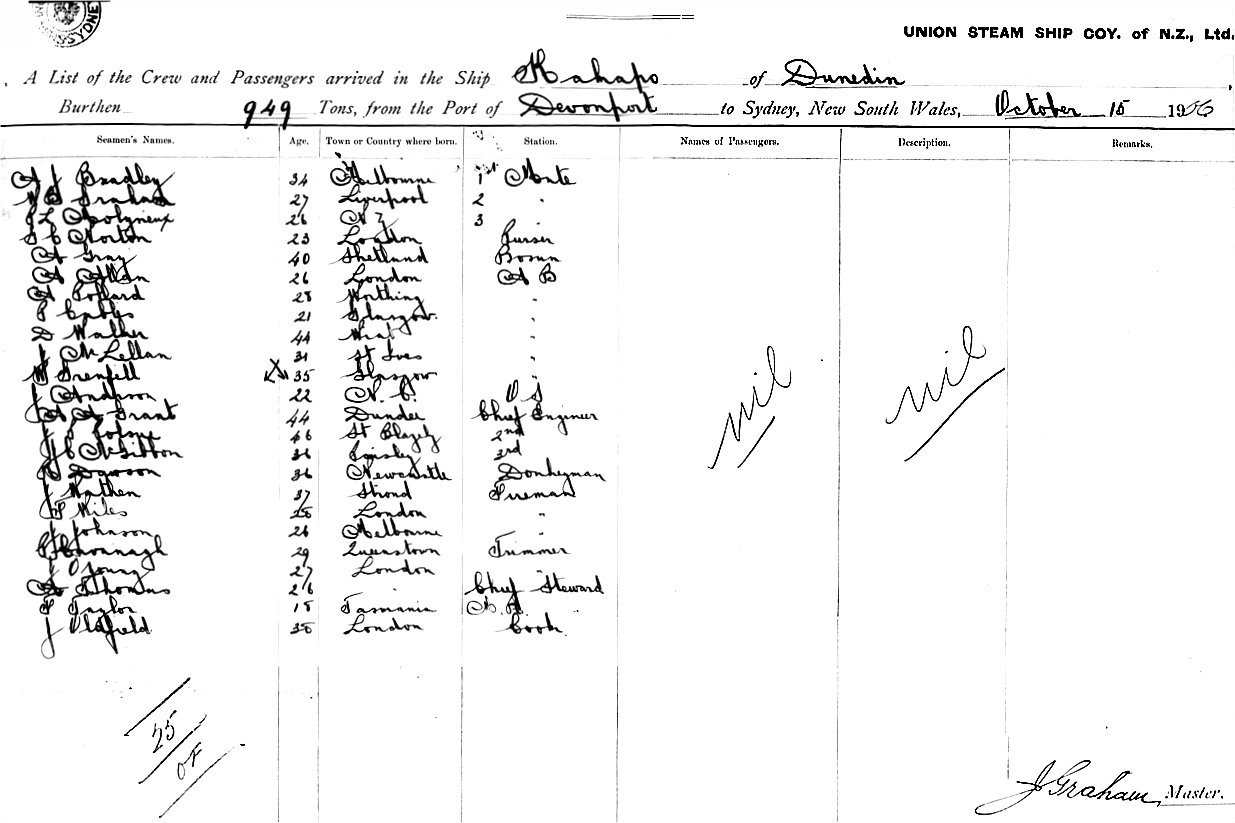 SYDNEY
UNION STEAM SHIP COY. of N.Z., Ltd.
A List of the Crew and Passengers arrived in the Ship Kahapo of Dunedin
Burthen 949 Tons, from the Port of Devonport to Sydney, New South Wales, October 15 19
Seamen's Names. Age. Town or Country where born. Station. Names of Passengers. Description. Remarks.
A J Bradley 34 Melbourne 1st Mate
Graham 27 Liverpool 2 "
J L Molyneux 26 N Z 3
Norton 23 London Purser
A Gray 40 Shetland Bosun
A Allan 26 London A B
A Pollard 28 Worthing "
P 21 Glasgow "
D Walker 44 "
J McLellan 31 St Ives "
W Grenfell 35 Glasgow "
J Anderson 22 N. C. O S
A A Grant 44 Dundee Chief Engineer
J 46 St Blazey 2nd
J C McGibbon 36 Paisley 3rd
R Dawson 36 Newcastle Donkeyman
J Mathen 37 Stroud Fireman
Miles London "
J Johnson 26 Melbourne "
P Cavanagh 29 Queenstown Trimmer
J O Young 27 London "
Thomas 26 " Chief Steward
F Taylor 18 Tasmania
J Oldfield London Cook
nil nil
25
OF
J Graham Master.